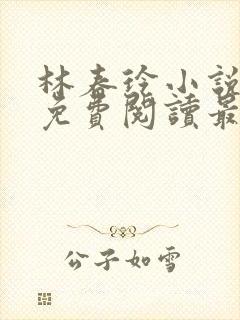 林春小說
免費閱讀最
公子如雪